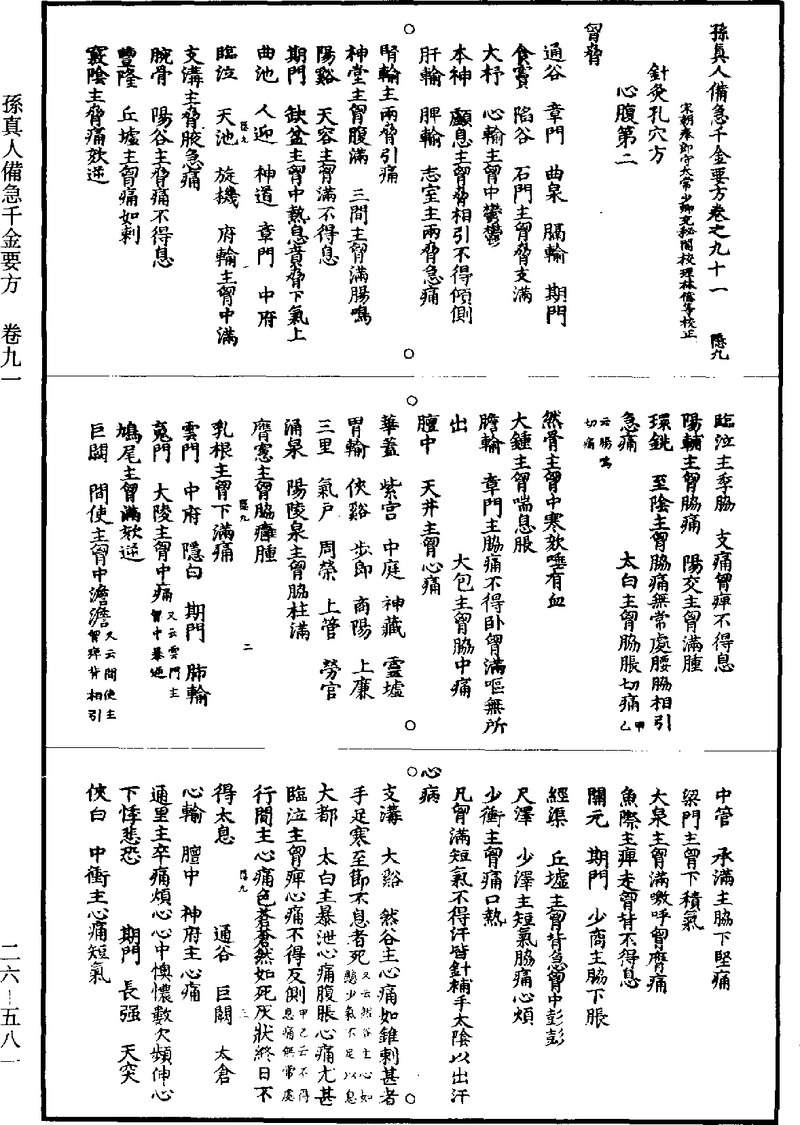 孫真人備急千金要方卷之九十一 隱九
宋朝奉郎守太常少卿充秘閣校理林億等校正
針灸孔穴方
心腹第二
胷脅
通谷 章門 曲泉 膈輸 期門
食竇 陷谷 石門主胷脅支滿
大杼 心輸主胷中鬱鬱
本神 顱息主胷脅相引不得傾側
肝輸 脾輸 志室主兩脅急痛
腎輸主兩脅引痛
神堂主胷腹滿 三間主胷滿腸鳴
陽谿 天容主胷滿不得息
期門 缺盆主胷中熱息賁脅下氣上
曲池 人迎 神道 章門 中府
臨泣 天池 旋機 府輸主胷中滿
隱九
支溝主脅腋急痛
腕骨 陽谷主脅痛不得息
豐隆 丘墟主胷痛如刺
竅陰主脅痛欬逆
臨泣主季脇 支痛胷痺不得息
陽輔主胷脇痛 陽交主胷滿腫
環銚 至陰主胷脇痛無常處腰脇相引
急痛 太白主胷脇脹切痛甲乙
云腸鳴切痛
然骨主胷中寒欬唾有血
大鍾主胷喘息脹
膽輸 章門主脇痛不得卧胷滿嘔無所
出 大包主胷脇中痛
膻中 天井主胷心痛
華蓋 紫宫 中庭 神藏 靈墟
胃輸 俠谿 步郎 商陽 上廉
三里 氣户 周榮 上管 勞宫
涌泉 陽陵泉主胷脇柱滿
膺窻主胷脇癰腫
隱九 二
乳根主胷下滿痛
雲門 中府 隱白 期門 肺輸
䰟門 大陵主胷中痛又云雲門主胷中暴逆
鳩尾主胷滿欬逆
巨闕 間使主胷中澹澹又云間使主胷痺背相引
中管 承滿主脇下堅痛
梁門主胷下積氣
大泉主胷滿噭呼胷膺痛
魚際主痺走胷背不得息
關元 期門 少商主脇下脹
經渠 丘墟主胷背急胷中彭彭
尺澤 少澤主短氣脇痛心煩
少衝主胷痛口熱
凡胷滿短氣不得汗皆針補手太陰以出汗
心病
支溝 大谿 然谷主心痛如錐刺甚者
手足寒至節不息者死又云然谷主心如懸少氣不足以息
大都 太白主暴泄心痛腹脹心痛尤甚
臨泣主胷痺心痛不得反側甲乙云不得息痛無常處
行間主心痛色蒼蒼然如死灰狀終日不
隱九 三
得太息 通谷 巨闕 太倉
心輸 膻中 神府主心痛
通里主卒痛煩心心中懊憹數欠頻伸心
下悸悲恐 期門 長强 天突
俠白 中衝主心痛短氣
孫真人備急千金要方 卷九一
二六－五八一